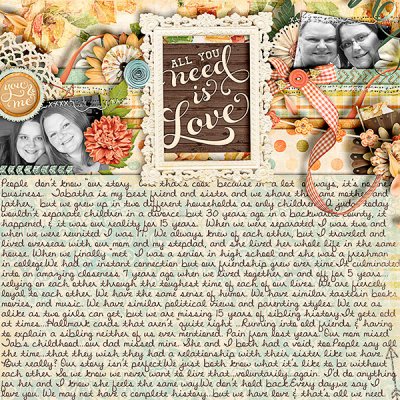 ALL YOU
need
is
Love
you &
me
People don't know our story. And that's cool because in a lot of ways, it's no one's
business. Tabatha is my best friend and sister and we share the same mother and
father, but we grew up in two different households as only children. A judge today
wouldn't separate children in a divorce but 30 years ago in a backwards county, it
happened, & it was our reality for 15 years. When we were separated I was two and
when we were reunited I was 17. We always knew of each other, but I traveled and
lived overseas with our mom and my stepdad, and she lived her whole life in the same
house. When we finally met I was a senior in high school and she was a freshman
in college. We had an instant connection but our friendship grew over time. It culminated
into an amazing closeness 7 years ago when we lived together on and off for 5 years
relying on each other through the toughest time of each of our lives. We are fiercely
loyal to each other. We have the same sense of humor. We have similar taste in books,
movies, and music. We have similar political views and parenting styles. We are as
alike as two girls can get, but we are missing 15 years of sibling history. It gets odd
at times...Hallmark cards that aren't quite right...Running into old friends & having
to explain a sibling neither of us ever mentioned. Pain from lost years. Our mom missed
Tab's childhood...our dad missed mine. She and I both had a void, too. People say all
the time...that they wish they had a relationship with their sister like we have.
But really? Our story isn't perfect. We just both know what it's like to be without
each other so we know we never want to live that...voluntarily...again. I'd do anything
for her and I know she feels the same way. We don't hold back. Every day we say I
love you. We may not have a complete history...but we have love & that's all we need.